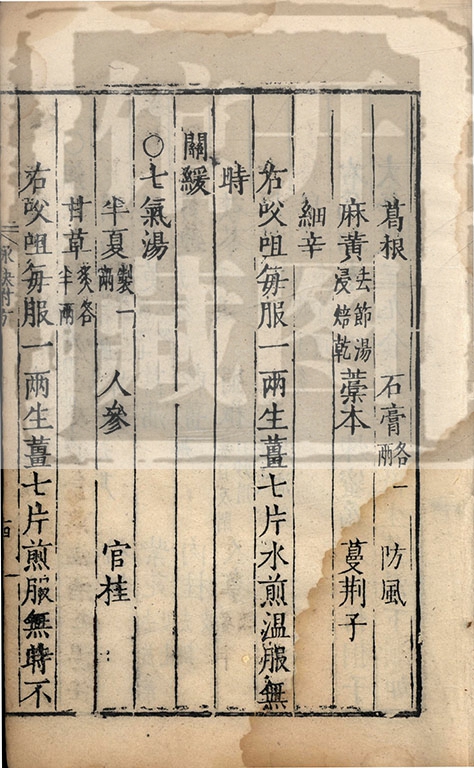 葛根 石膏各一兩 防風
麻黃去節湯浸焙乾 藁本 蔓荆子
細辛
右㕮咀每服一兩生薑七片水煎溫服無
時
關緩
〇七氣湯
半夏製一兩 人參 官桂
甘草炙各半兩
右㕮咀每服一兩生薑七片煎服無時不